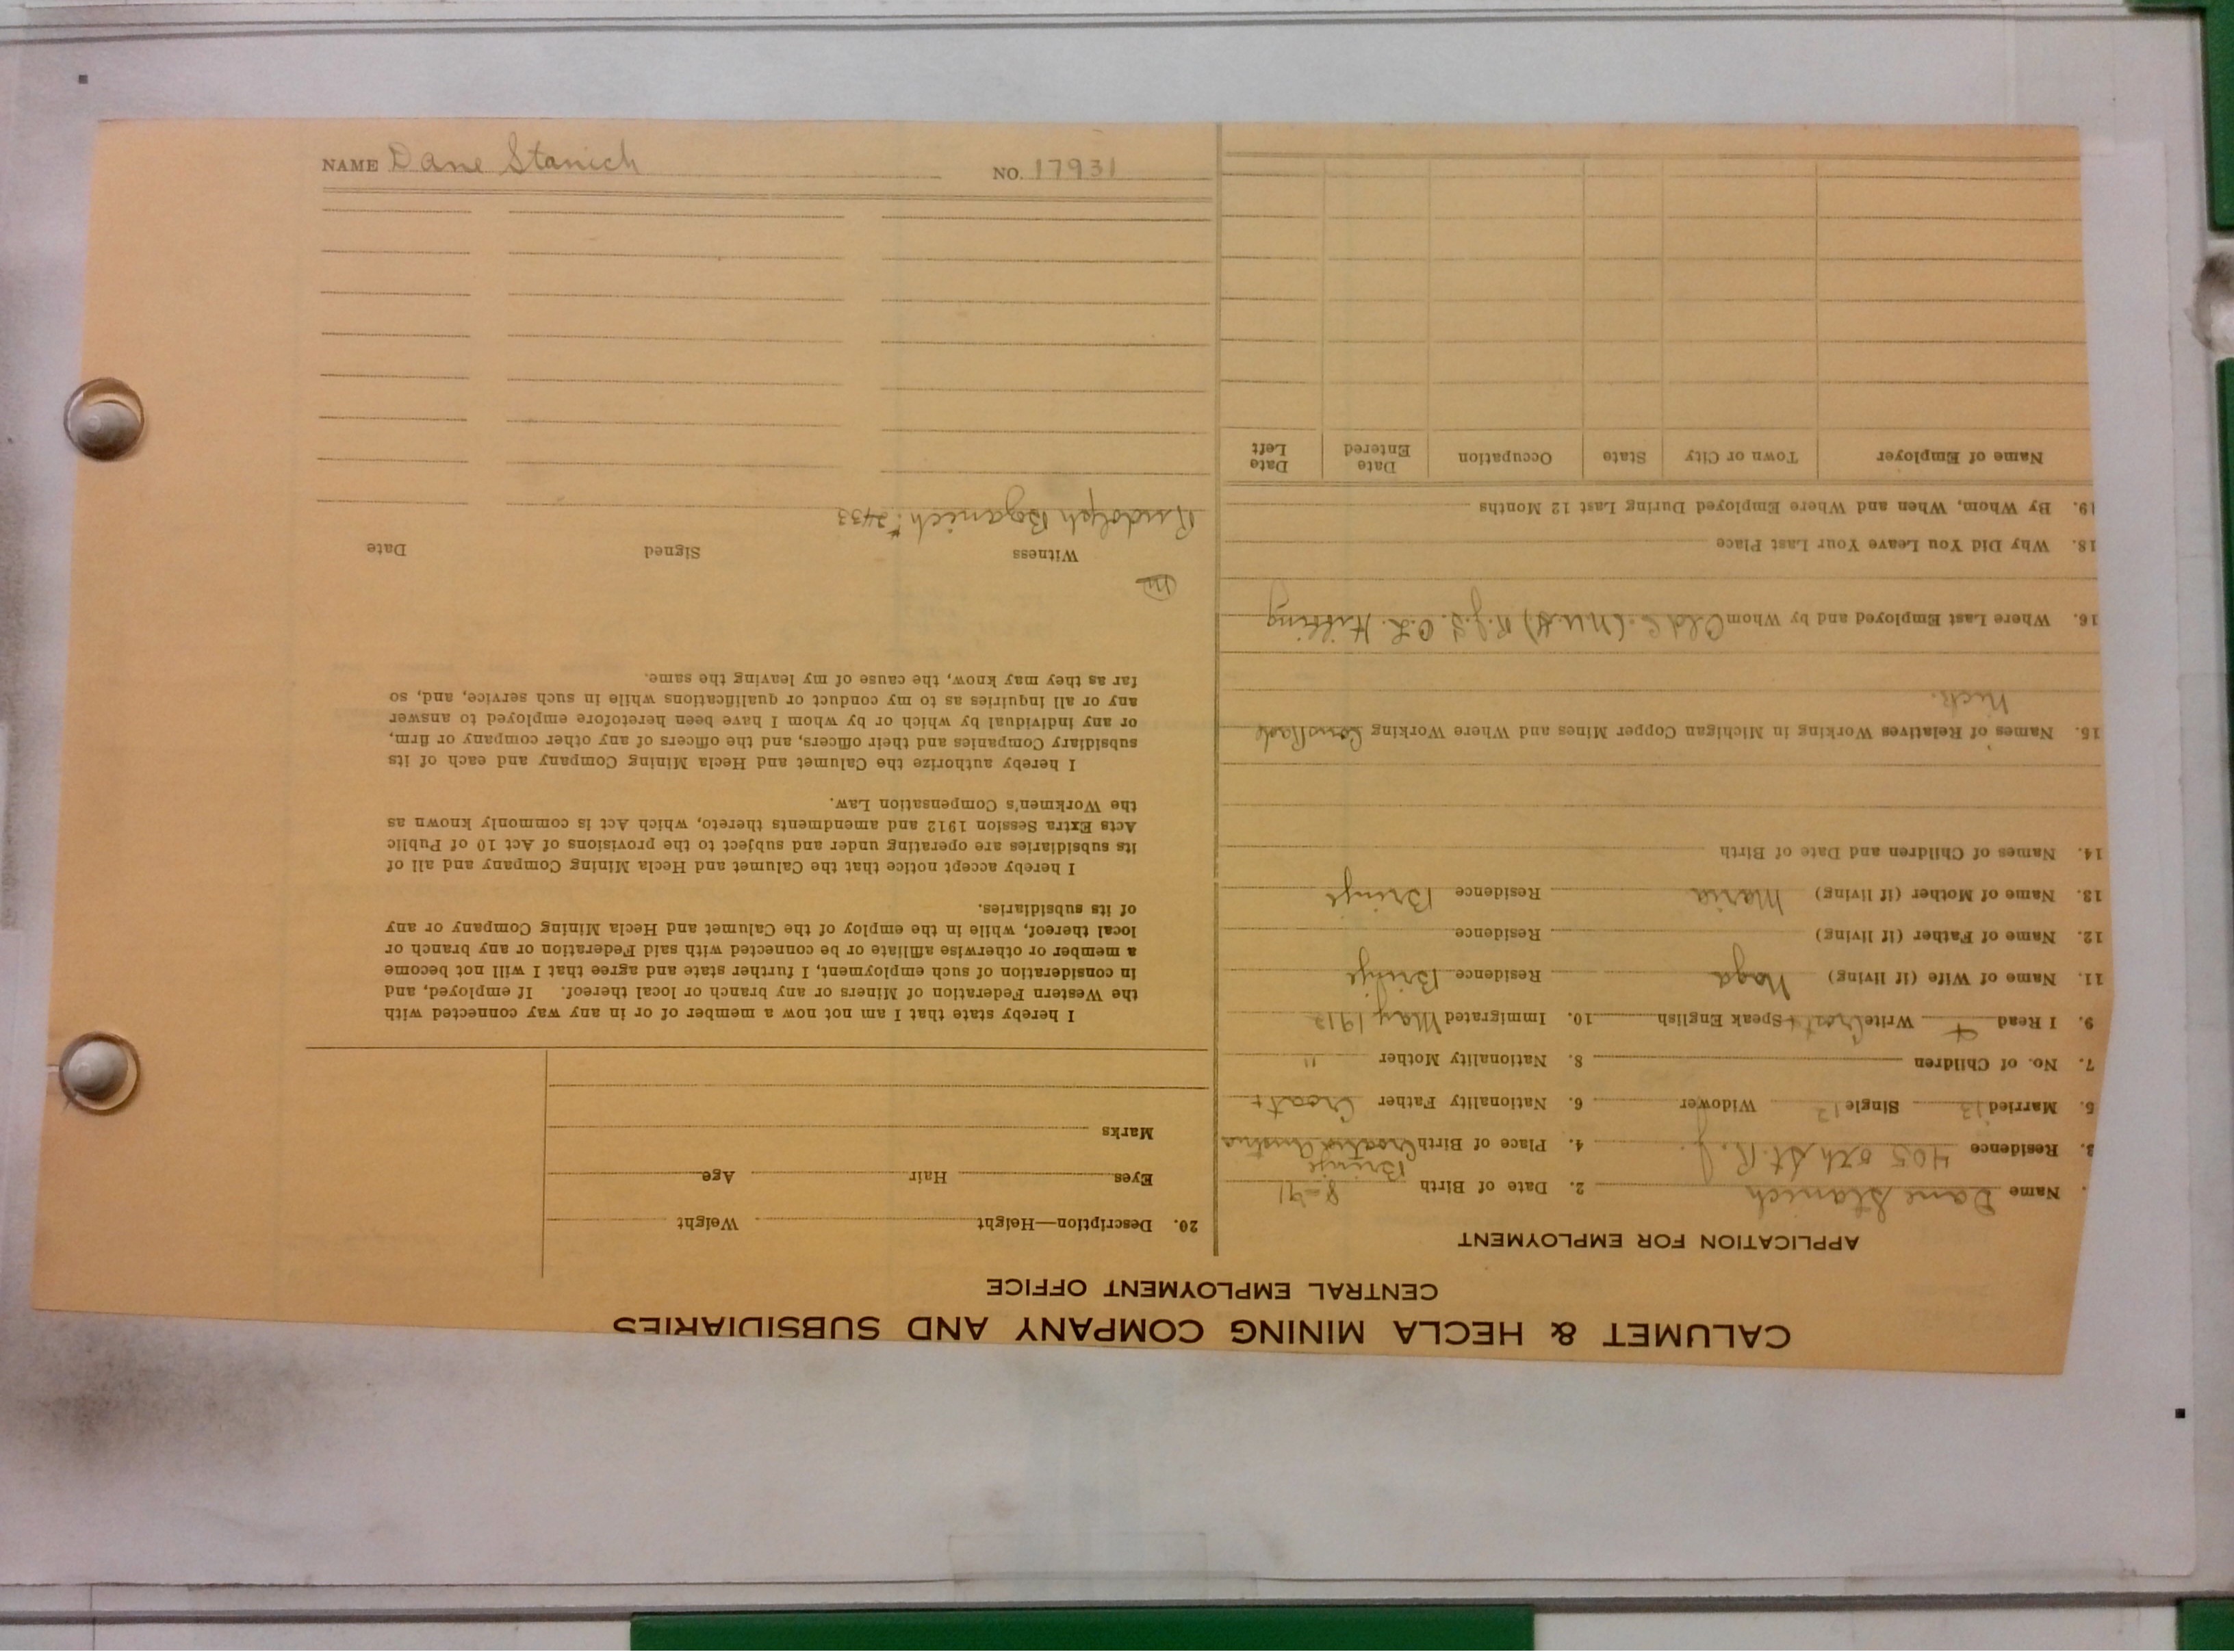 NAME Dane Stanich NO. 17931
CALUMET & HECLA MINING COMPANY AND SUBSIDIARIES
CENTRAL EMPLOYMENT OFFICE
APPLICATION FOR EMPLOYMENT
Name Dane Stanich 2. Date of Birth 8-91
Brinje
3. Residence 405 5th St. R. J. 4. Place of Birth Croatia Austria
5. Married Single Widower 6. Nationality Father Croat +
7. No. of Children 8. Nationality Mother "
9. I Read + Write Croat + Speak English 10. Immigrated May 1912
11. Name of Wife (if living) Residence Brinje
12. Name of Father (if living) Residence
13. Name of Mother (if living) Maria Residence Brinje
14. Names of Children and Date of Birth
15. Names of Relatives Working in Michigan Copper Mines and Where Working
Nick.
16. Where Last Employed and by Whom
18. Why Did You Leave Your Last Place
19. By Whom, When and Where Employed During Last 12 Months
Name of Employer Town or City State Occupation Date Entered Date Left
20. Description—Height Weight
Eyes Hair Age
Marks
I hereby state that I am not now a member of or in any way connected with
the Western Federation of Miners or any branch or local thereof. If employed, and
in consideration of such employment, I further state and agree that I will not become
a member or otherwise affiliate or be connected with said Federation or any branch or
local thereof, while in the employ of the Calumet and Hecla Mining Company or any
of its subsidiaries.
I hereby accept notice that the Calumet and Hecla Mining Company and all of
its subsidiaries are operating under and subject to the provisions of Act 10 of Public
Acts Extra Session 1912 and amendments thereto, which Act is commonly known as
the Workmen's Compensation Law.
I hereby authorize the Calumet and Hecla Mining Company and each of its
subsidiary Companies and their officers, and the officers of any other company or firm,
or any individual by which or by whom I have been heretofore employed to answer
any or all inquiries as to my conduct or qualifications while in such service, and, so
far as they may know, the cause of my leaving the same.
Witness Signed Date
Rudolph Boganich #2433